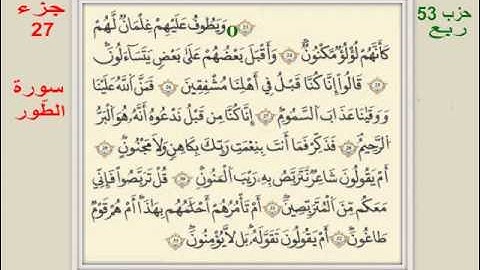 جزء
27
سورة
الطّور
حزب 53
ربع
وَيَطُوفُ عَلَيْهِمْ غِلْمَانٌ لَّهُمْ
كَأَنَّهُمْ لُؤْلُؤٌ مَّكْنُونٌ وَأَقْبَلَ بَعْضُهُمْ عَلَىٰ بَعْضٍ يَتَسَآءَلُونَ
قَالُوٓا۟ إِنَّا كُنَّا قَبْلُ فِىٓ أَهْلِنَا مُشْفِقِينَ فَمَنَّ ٱللَّهُ عَلَيْنَا
وَوَقَىٰنَا عَذَابَ ٱلسَّمُومِ إِنَّا كُنَّا مِن قَبْلُ نَدْعُوهُ أَنَّهُۥ هُوَ ٱلْبَرُّ
ٱلرَّحِيمُ فَذَكِّرْ فَمَآ أَنتَ بِنِعْمَتِ رَبِّكَ بِكَاهِنٍ وَلَا مَجْنُونٍ
أَمْ يَقُولُونَ شَاعِرٌ نَّتَرَبَّصُ بِهِۦ رَيْبَ ٱلْمَنُونِ قُلْ تَرَبَّصُوا۟ فَإِنِّى
مَعَكُم مِّنَ ٱلْمُتَرَبِّصِينَ أَمْ تَأْمُرُهُمْ أَحْلَٰمُهُم بِهَٰذَآ أَمْ هُمْ قَوْمٌ
طَاغُونَ أَمْ يَقُولُونَ تَقَوَّلَهُۥ بَل لَّا يُؤْمِنُونَ